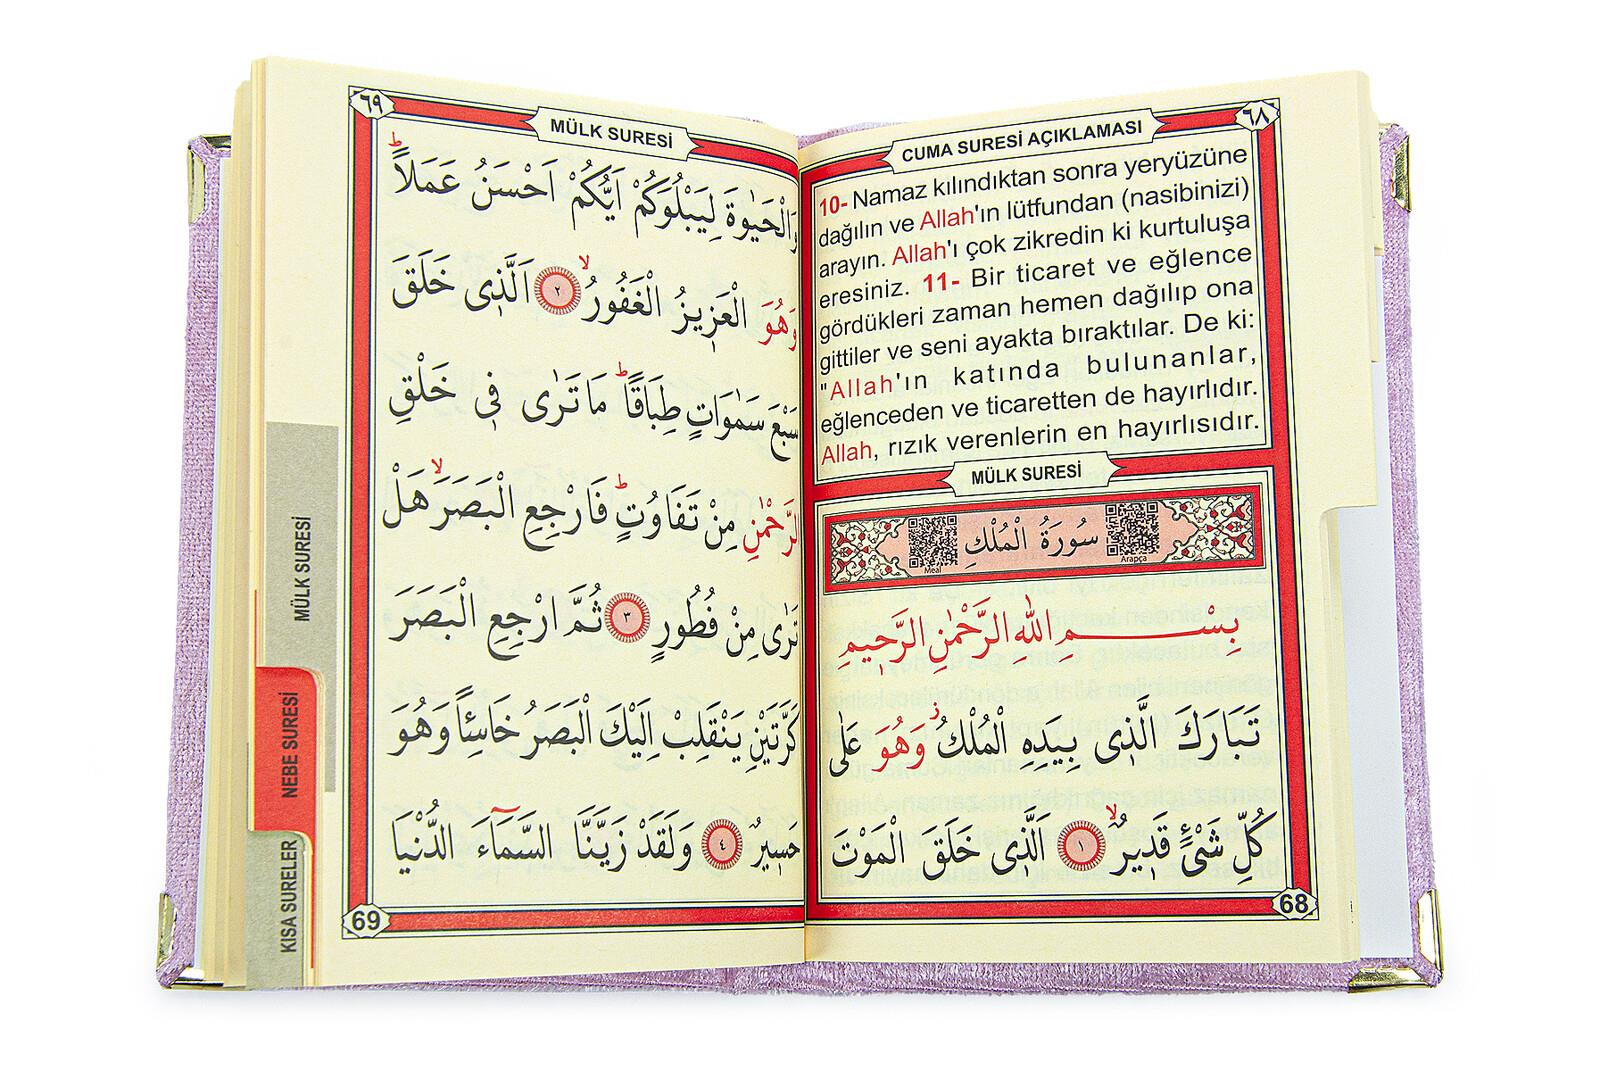 ٦٨
CUMA SURESİ AÇIKLAMASI
10- Namaz kılındıktan sonra yeryüzüne
dağılın ve Allah'ın lütfundan (nasibinizi)
arayın. Allah'ı çok zikredin ki kurtuluşa
eresiniz. 11- Bir ticaret ve eğlence
gördükleri zaman hemen dağılıp ona
gittiler ve seni ayakta bıraktılar. De ki:
"Allah'ın katında bulunanlar,
eğlenceden ve ticaretten de hayırlıdır.
Allah, rızık verenlerin en hayırlısıdır.
MÜLK SURESİ
سُورَةُ الْمُلْكِ
Arapça
Meal
بِسْمِ اللهِ الرَّحْمٰنِ الرَّحِيمِ
تَبَارَكَ الَّذِى بِيَدِهِ الْمُلْكُ ز وَهُوَ عَلٰى
كُلِّ شَىْءٍ قَدِيرٌ لا ١ اَلَّذِى خَلَقَ الْمَوْتَ
68
٦٩
MÜLK SURESİ
وَالْحَيٰوةَ لِيَبْلُوَكُمْ اَيُّكُمْ اَحْسَنُ عَمَلاً ط
وَهُوَ الْعَزِيزُ الْغَفُورُ لا ٢ اَلَّذِى خَلَقَ
سَبْعَ سَمٰوَاتٍ طِبَاقًا ط مَا تَرٰى فِى خَلْقِ
الرَّحْمٰنِ مِنْ تَفَاوُتٍ ط فَارْجِعِ الْبَصَرَ لا هَلْ
تَرٰى مِنْ فُطُورٍ ٣ ثُمَّ ارْجِعِ الْبَصَرَ
كَرَّتَيْنِ يَنْقَلِبْ اِلَيْكَ الْبَصَرُ خَاسِئًا وَهُوَ
حَسِيرٌ ٤ وَلَقَدْ زَيَّنَّا السَّمَاءَ الدُّنْيَا
69
MÜLK SURESİ
NEBE SURESİ
KISA SURELER